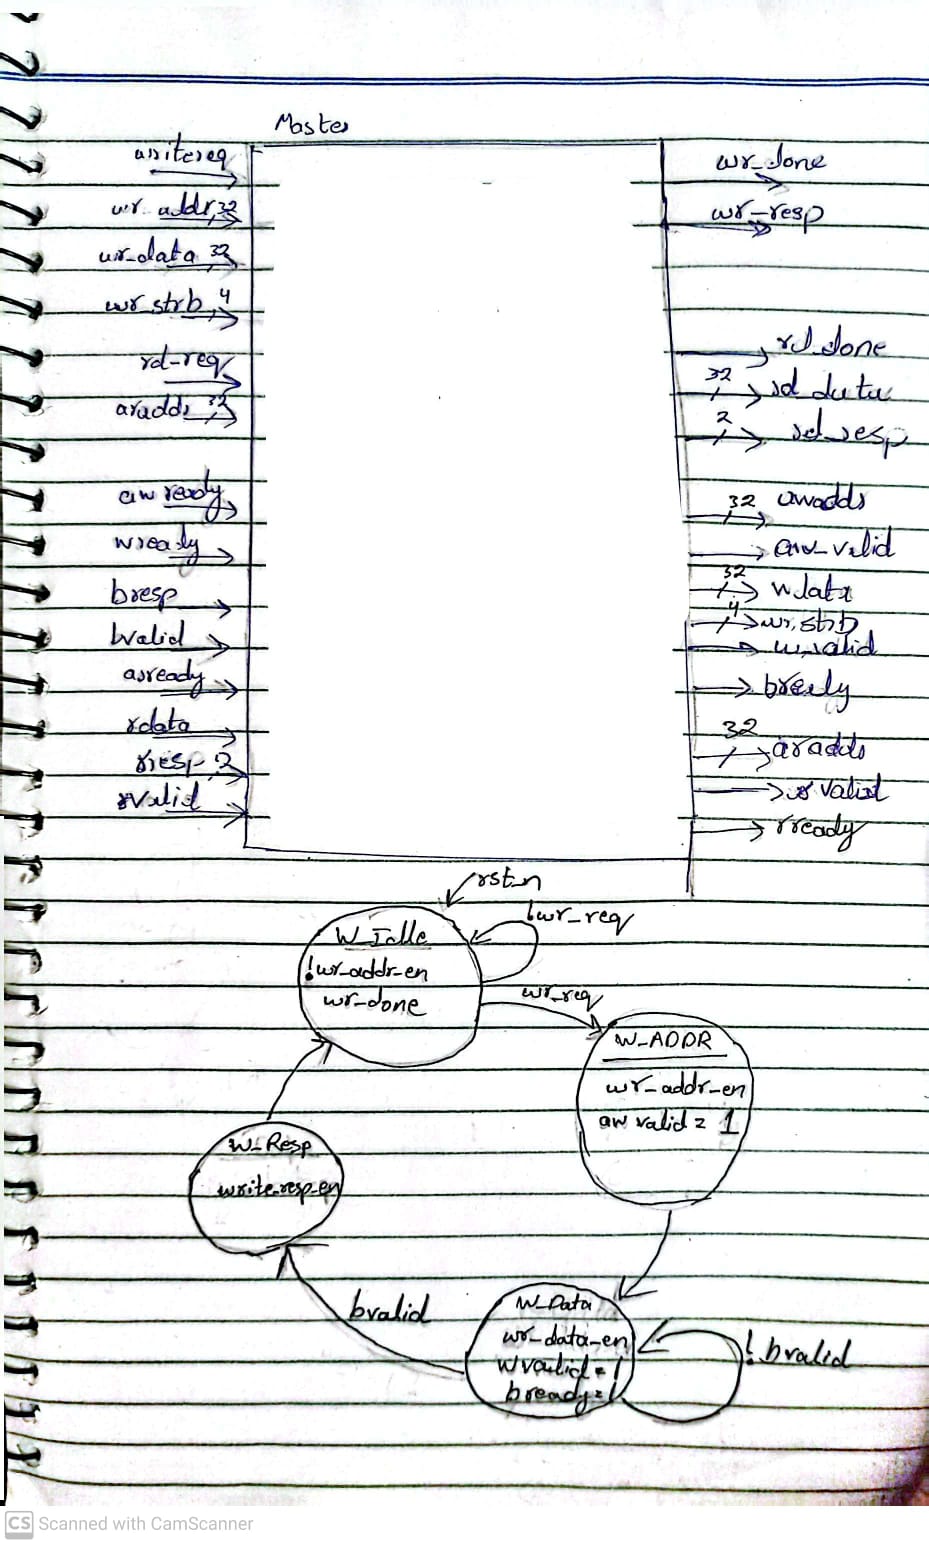 Master
writereq
wr_addr 32
wr_data 32
wr_strb 4
rd-req
araddr 32
aw ready
wready
bresp
bvalid
arready
rdata
rresp 2
rvalid
wr_done
wr-resp
rd_done
32 rd_data
2 rd_resp
32 awaddr
aw_valid
32 wdata
4 wr.strb
w_valid
bready
32 araddr
valid
rready
rst_n
!wr_req
W_Idle
!wr_addr_en
wr_done
wr_req
W_ADDR
wr_addr_en
aw valid = 1
W_Resp
write_resp_en
bvalid
W_Data
wr_data_en
wvalid = 1
bready=1
!bvalid
CS Scanned with CamScanner